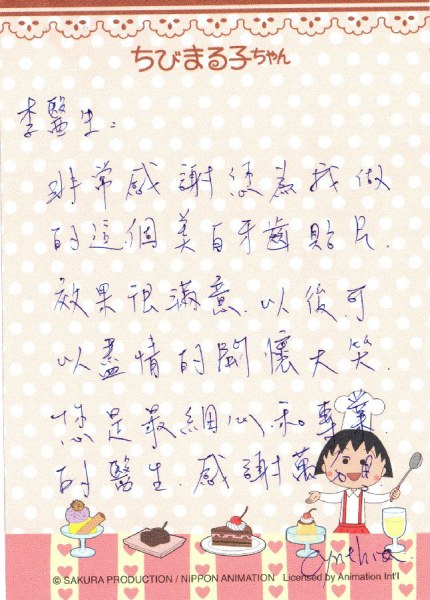 ちびまる子ちゃん
李醫生：
非常感謝您為我做
的這個美白牙齒貼片.
效果很滿意.以後可
以盡情的開懷大笑.
您是最細心和專業
的醫生.感謝萬分!
Cynthia.
© SAKURA PRODUCTION / NIPPON ANIMATION Licensed by Animation Int'l